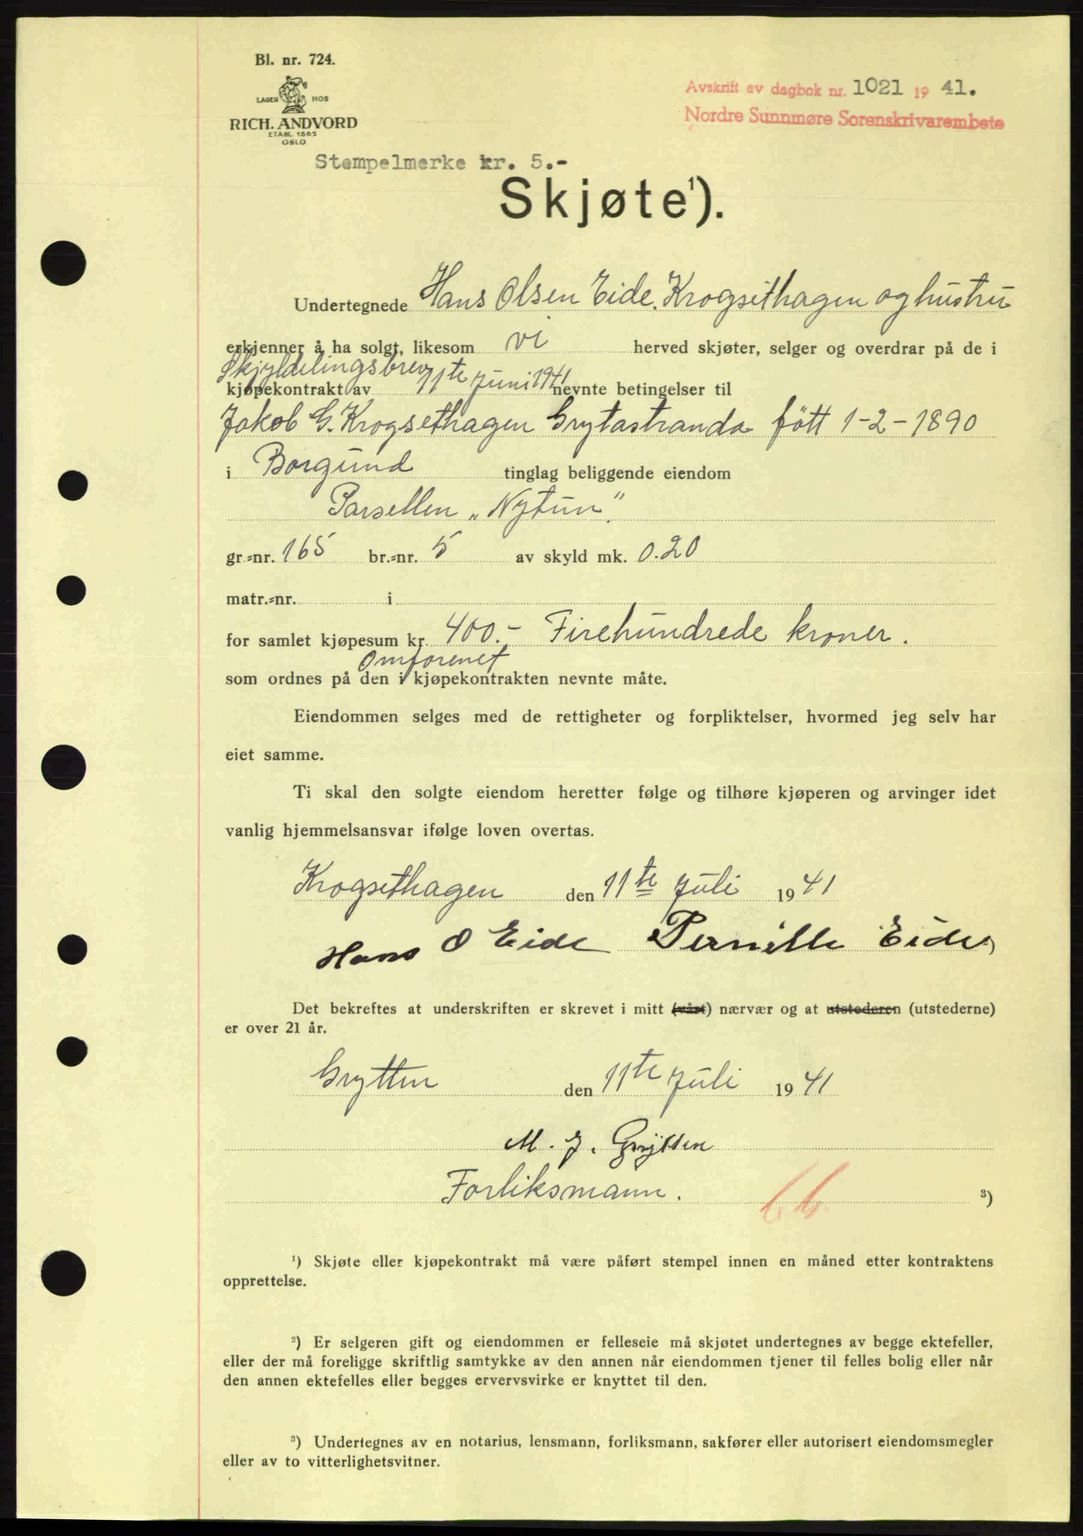 Bl. nr. 724.
LAGER HOS
RICH. ANDVORD
ETABL 1865
OSLO
Avskrift av dagbok nr. 1021 19 41.
Nordre Sunnmøre Sorenskrivarembete
Stempelmerke kr. 5.-
Skjøte¹).
Undertegnede Hans Olsen Eide, Krogsethagen og hustru
erkjenner å ha solgt, likesom vi herved skjøter, selger og overdrar på de i
Skjyldelingsbrev
kjøpekontrakt av 11te Juni 1941 nevnte betingelser til
Jakob G. Krogsethagen Grytastranda fött 1-2-1890
i Borgund tinglag beliggende eiendom
Parsellen „Nytun".
gr.-nr. 165 br.-nr. 5 av skyld mk. 0.20
matr.-nr. i
for samlet kjøpesum kr. 400.- Firehundrede kroner.
Omforenet
som ordnes på den i kjøpekontrakten nevnte måte.
Eiendommen selges med de rettigheter og forpliktelser, hvormed jeg selv har
eiet samme.
Ti skal den solgte eiendom heretter følge og tilhøre kjøperen og arvinger idet
vanlig hjemmelsansvar ifølge loven overtas.
Krogsethagen den 11te Juli 1941
Hans O Eide Pernille Eide )
Det bekreftes at underskriften er skrevet i mitt (vårt) nærvær og at utstederen (utstederne)
er over 21 år.
Grytten den 11te Juli 1941
M. J. Grytten
Forliksmann. ³)
¹) Skjøte eller kjøpekontrakt må være påført stempel innen en måned etter kontraktens
opprettelse.
²) Er selgeren gift og eiendommen er felleseie må skjøtet undertegnes av begge ektefeller,
eller der må foreligge skriftlig samtykke av den annen når eiendommen tjener til felles bolig eller når
den annen ektefelles eller begges ervervsvirke er knyttet til den.
³) Undertegnes av en notarius, lensmann, forliksmann, sakfører eller autorisert eiendomsmegler
eller av to vitterlighetsvitner.